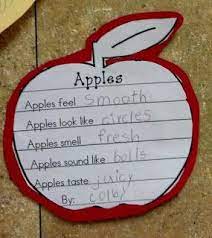 Apples
Apples feel smooth
Apples look like circles
Apples smell fresh
Apples sound like balls
Apples taste juicy
By: Colby